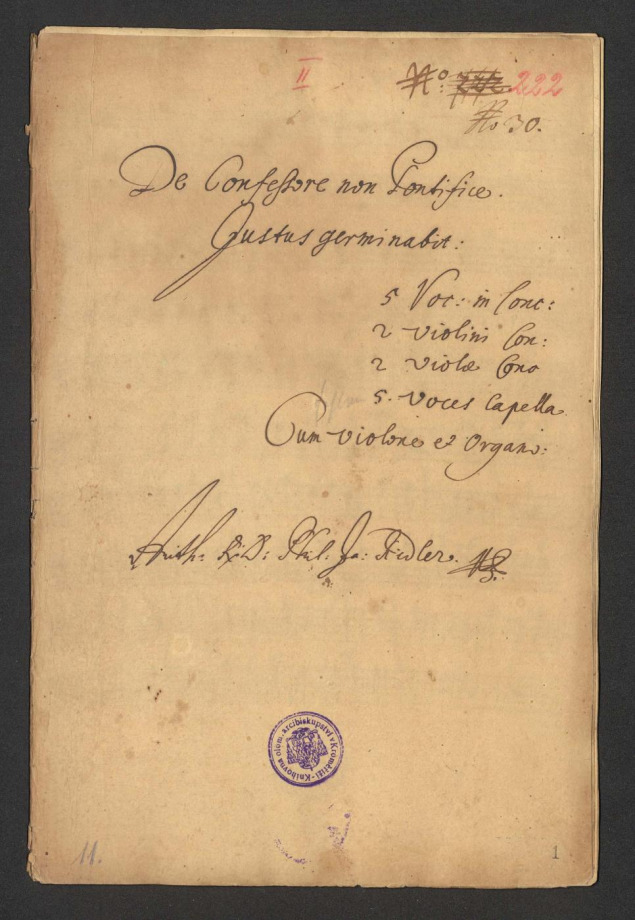 II
No: 222
No 30.
De Confessore non Pontifice.
Justus germinabit:
5 Voc: in Conc:
2 violini Con:
2 violæ Conc
5. voces Capella
Cum violone et Organo:
Auth: R: D: Phil: Ja: Riedler.
Knihovna olom. arcibiskupství v Kroměříži
11.
1